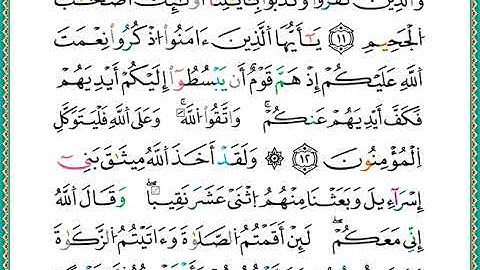 وَالَّذِينَ كَفَرُوا وَكَذَّبُوا بِآيَاتِنَا أُولَٰئِكَ أَصْحَٰبُ
الْجَحِيمِ ۝١١ يَٰٓأَيُّهَا الَّذِينَ ءَامَنُوا اذْكُرُوا نِعْمَتَ
اللَّهِ عَلَيْكُمْ إِذْ هَمَّ قَوْمٌ أَن يَبْسُطُوٓا إِلَيْكُمْ أَيْدِيَهُمْ
فَكَفَّ أَيْدِيَهُمْ عَنكُمْ ۖ وَاتَّقُوا اللَّهَ ۚ وَعَلَى اللَّهِ فَلْيَتَوَكَّلِ
الْمُؤْمِنُونَ ۝١٢ ۞ وَلَقَدْ أَخَذَ اللَّهُ مِيثَٰقَ بَنِىٓ
إِسْرَٰٓءِيلَ وَبَعَثْنَا مِنْهُمُ اثْنَىْ عَشَرَ نَقِيبًا ۖ وَقَالَ اللَّهُ
إِنِّى مَعَكُمْ ۖ لَئِنْ أَقَمْتُمُ الصَّلَوٰةَ وَءَاتَيْتُمُ الزَّكَوٰةَ